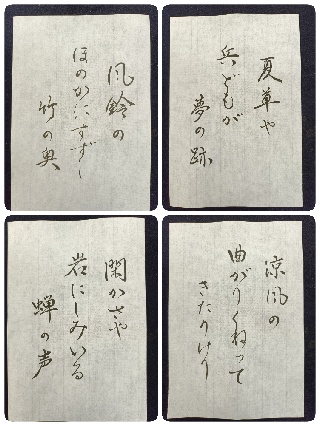 風鈴の
ほのかにすずし
竹の奥
夏草や
兵どもが
夢の跡
閑かさや
岩にしみいる
蝉の声
涼風の
曲がりくねって
きたりけり